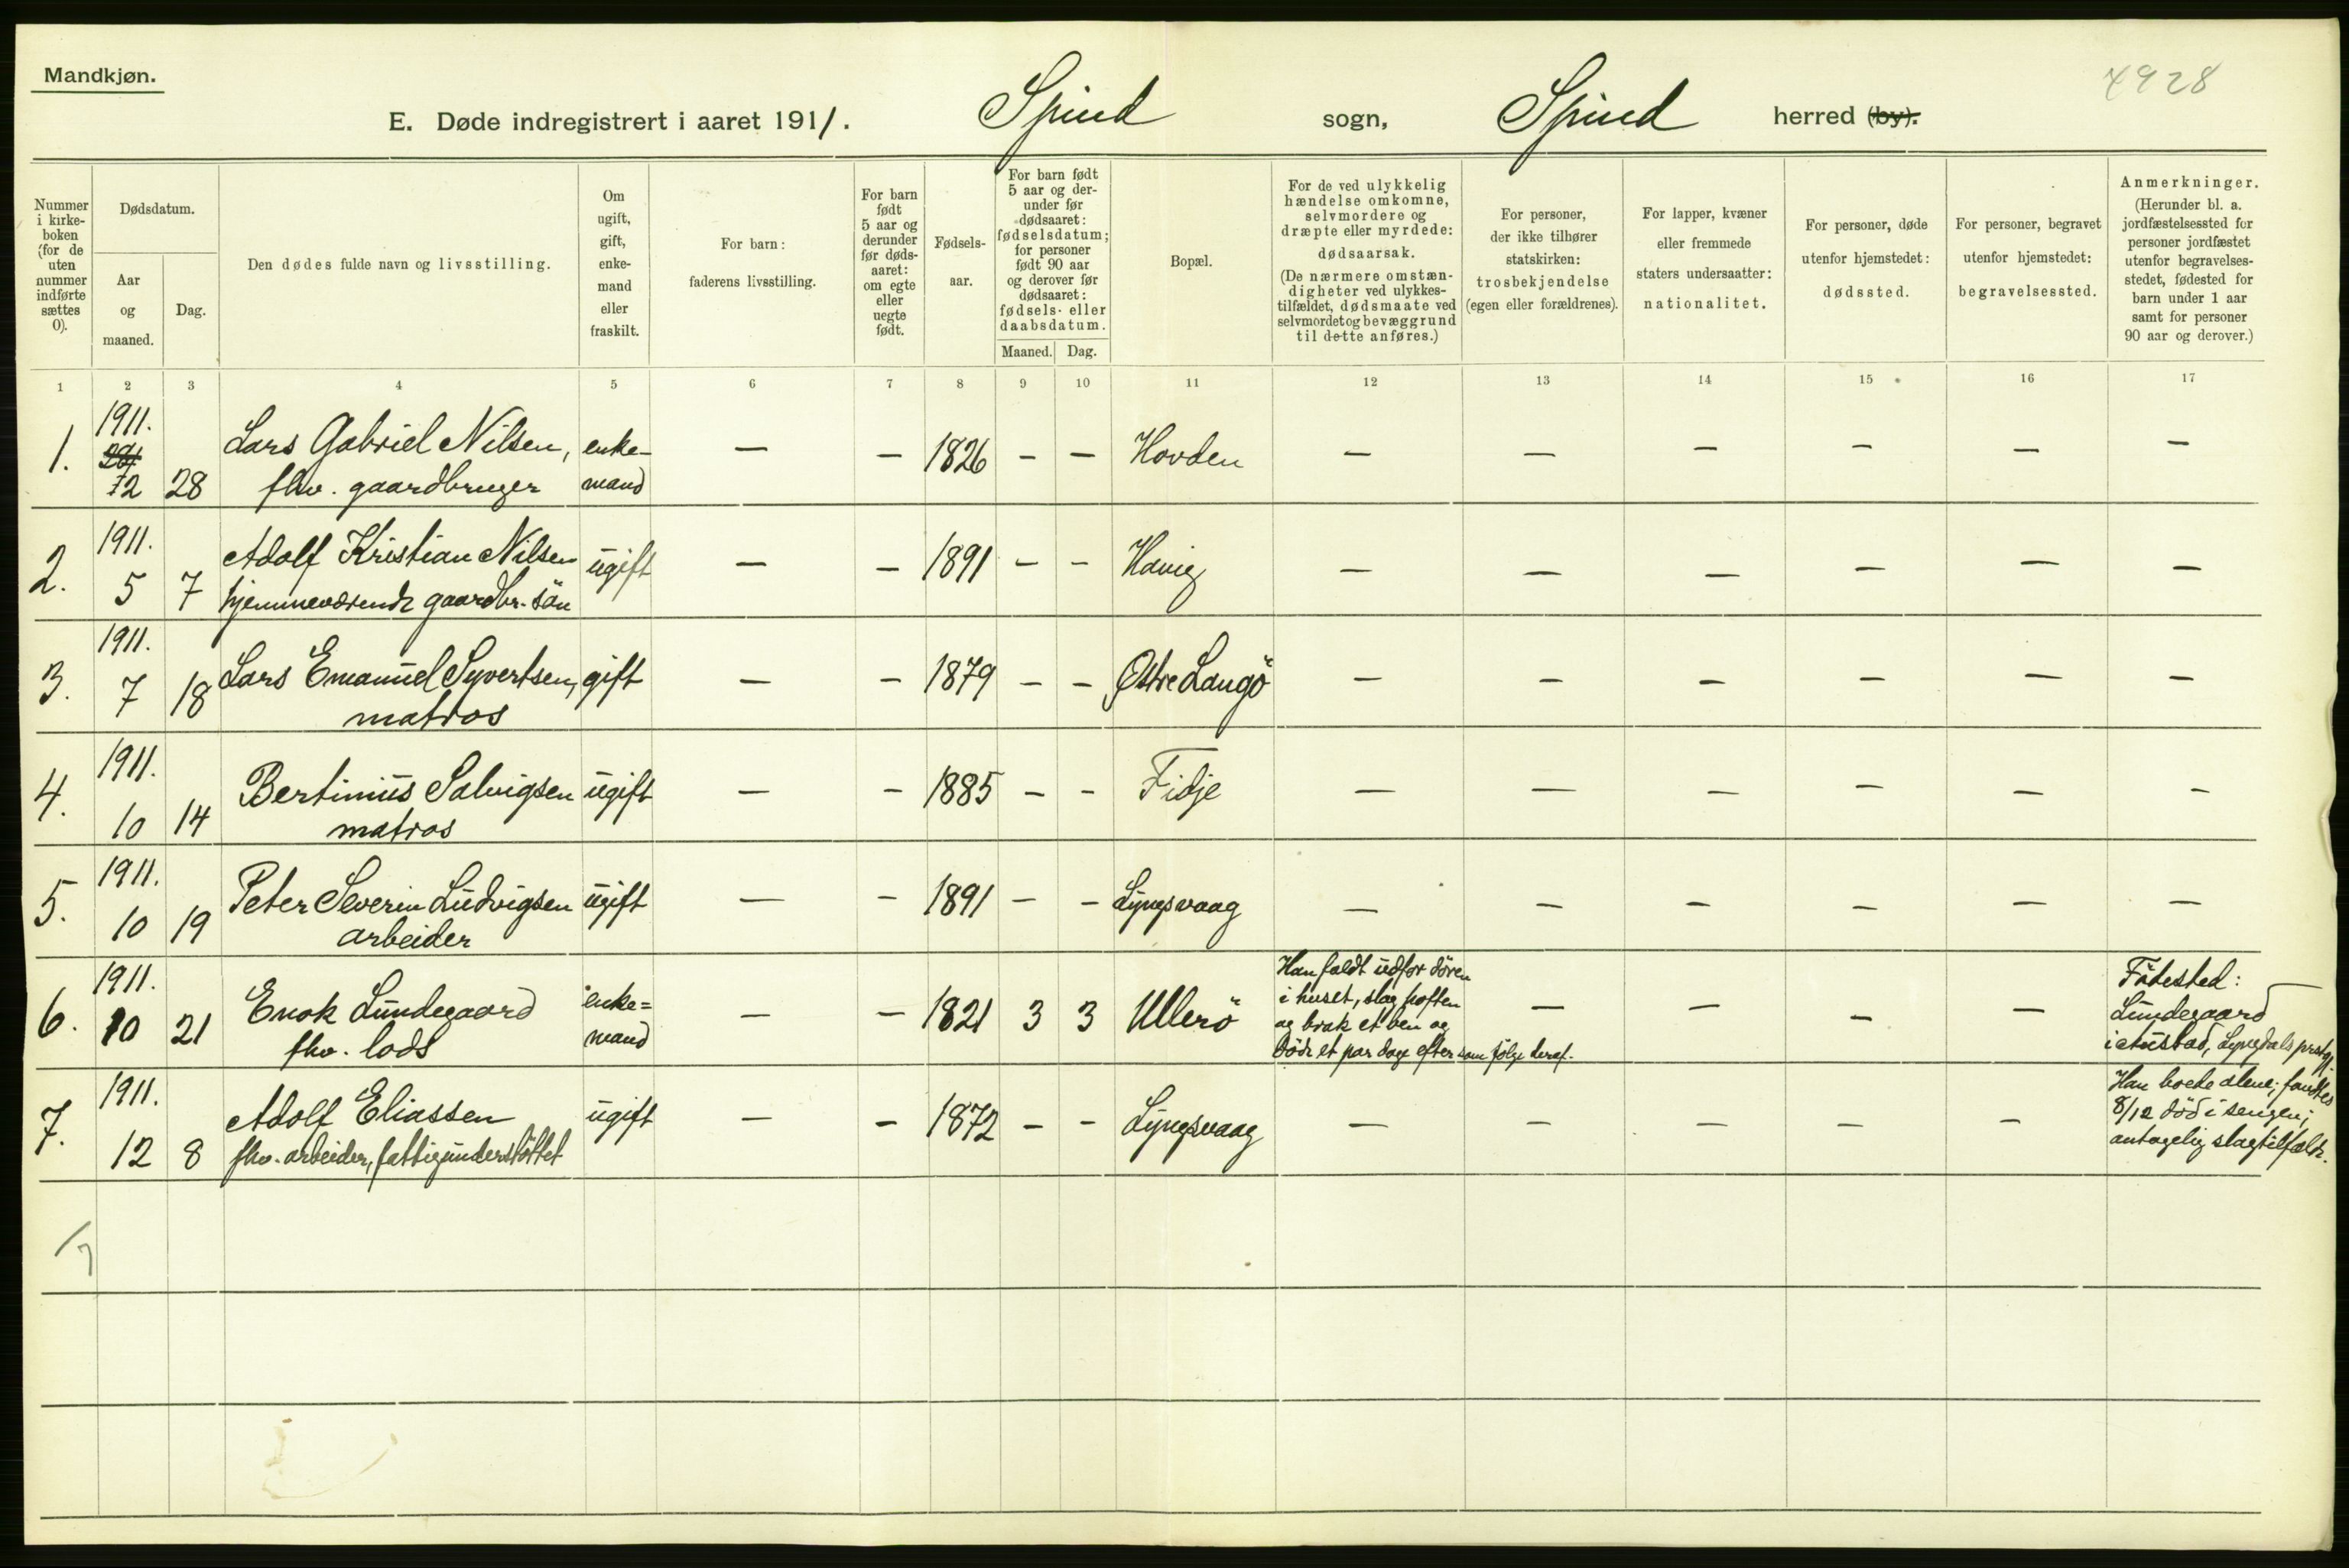 Mandkjøn.
4928
E. Døde indregistrert i aaret 1911. Spind sogn, Spind herred (by).
Nummer i kirke- boken (for de uten nummer indførte sættes 0).
Dødsdatum.
Aar og maaned.
Dag.
Den dødes fulde navn og livsstilling.
Om ugift, gift, enke- mand eller fraskilt.
For barn: faderens livsstilling.
For barn født 5 aar og derunder før døds- aaret: om egte eller uegte født.
Fødsels- aar.
For barn født 5 aar og der- under før dødsaaret: fødselsdatum; for personer født 90 aar og derover før dødsaaret: fødsels- eller daabsdatum.
Maaned. Dag.
Bopæl.
For de ved ulykkelig hændelse omkomne, selvmordere og dræpte eller myrdede: dødsaarsak. (De nærmere omstæn- digheter ved ulykkes- tilfældet, dødsmaate ved selvmordet og bevæggrund til dette anføres.)
For personer, der ikke tilhører statskirken: trosbekjendelse (egen eller forældrenes).
For lapper, kvæner eller fremmede staters undersaatter: nationalitet.
For personer, døde utenfor hjemstedet: dødssted.
For personer, begravet utenfor hjemstedet: begravelsessted.
Anmerkninger. (Herunder bl. a. jordfæstelsessted for personer jordfæstet utenfor begravelses- stedet, fødested for barn under 1 aar samt for personer 90 aar og derover.)
1 2 3 4 5 6 7 8 9 10 11 12 13 14 15 16 17
1911.
1. Lars Gabriel Nilsen, enke- — — 1826 — — Hovden — — — — — —
2 28 fhv. gaardbruger mand
1911.
2. Adolf Kristian Nilsen ugift — — 1891 — — Havig — — — — — —
5 7 hjemmeværende gaardbr. sön
1911.
3. Lars Emanuel Syvertsen, gift — — 1879 — — Østre Langö — — — — — —
7 18 matros
1911.
4. Bertinius Salvigsen ugift — — 1885 — — Fidje — — — — — —
10 14 matros
1911.
5. Peter Severin Ludvigsen ugift — — 1891 — — Lyngsvaag — — — — — —
10 19 arbeider
1911.
6. Enok Lundegaard enke= — — 1821 3 3 Ullerö — — — —
10 21 fhv. lods mand
Han faldt udfor dören
i huset, slog hoften
og brak et ben og
döde et par dage efter som fölge deraf.
Födested:
Lundegaard
i Austad, Lyngdals prstgj.
1911.
7. Adolf Eliassen ugift — — 1872 — — Lyngsvaag — — — — —
12 8 fhv. arbeider, fattigunderstöttet
Han boede alene; fandtes
8/12 död i sengen;
antagelig slagtilfælde.
7